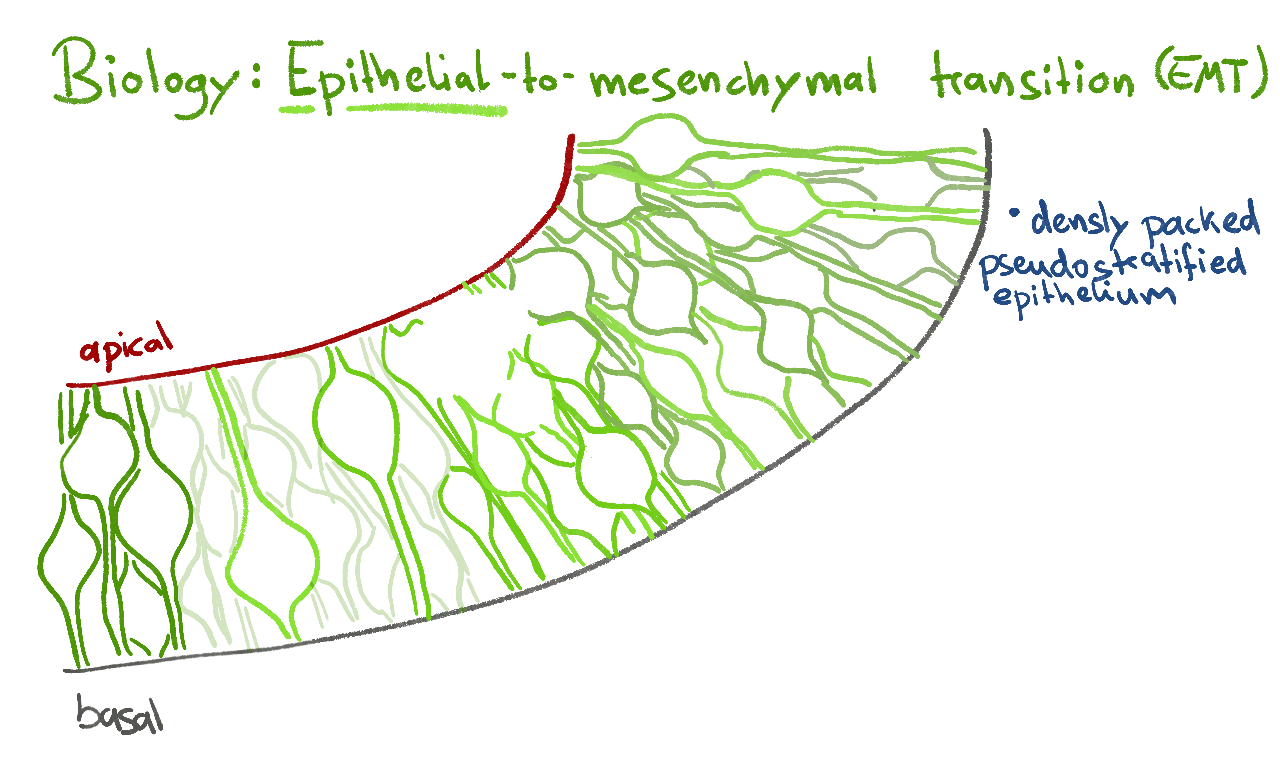 Biology: Epithelial-to-mesenchymal transition (EMT)
• densly packed
pseudostratified
epithelium
apical
basal